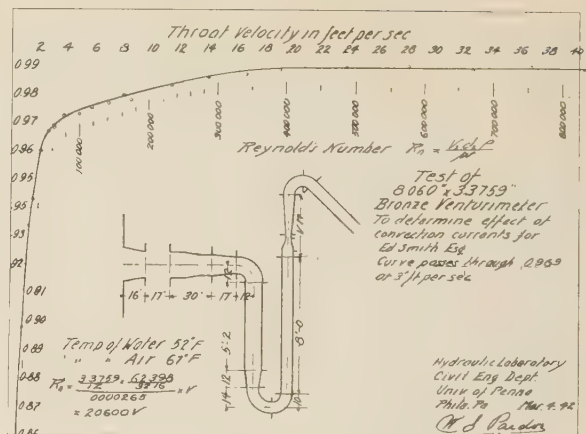 Throat Velocity in feet per sec
2 4 6 8 10 12 14 16 18 20 22 24 26 28 30 32 34 36 38 40
0.99
0.98
0.97
0.96
0.95
100000 200000 300000 400000 500000 600000 700000 800000
Reynold's Number
Test of
8.060" x 3.3759"
Bronze Venturimeter
To determine effect of
convection currants for
Ed Smith Esq
Curve passes through .0.969
at 3'/ft per sec
.93
.92
0.91
0.90
0.89
0.88
0.87
0.86
16" 17" 30" 17" 12"
5'-2
12
14
8'-0
10
Temp of Water 52°F
" " Air 67°F
= 20600 V
Hydraulic Laboratory
Civil Eng Dept.
Univ of Penna
Phila. Pa Mar. 4. 42
W S Pardoe